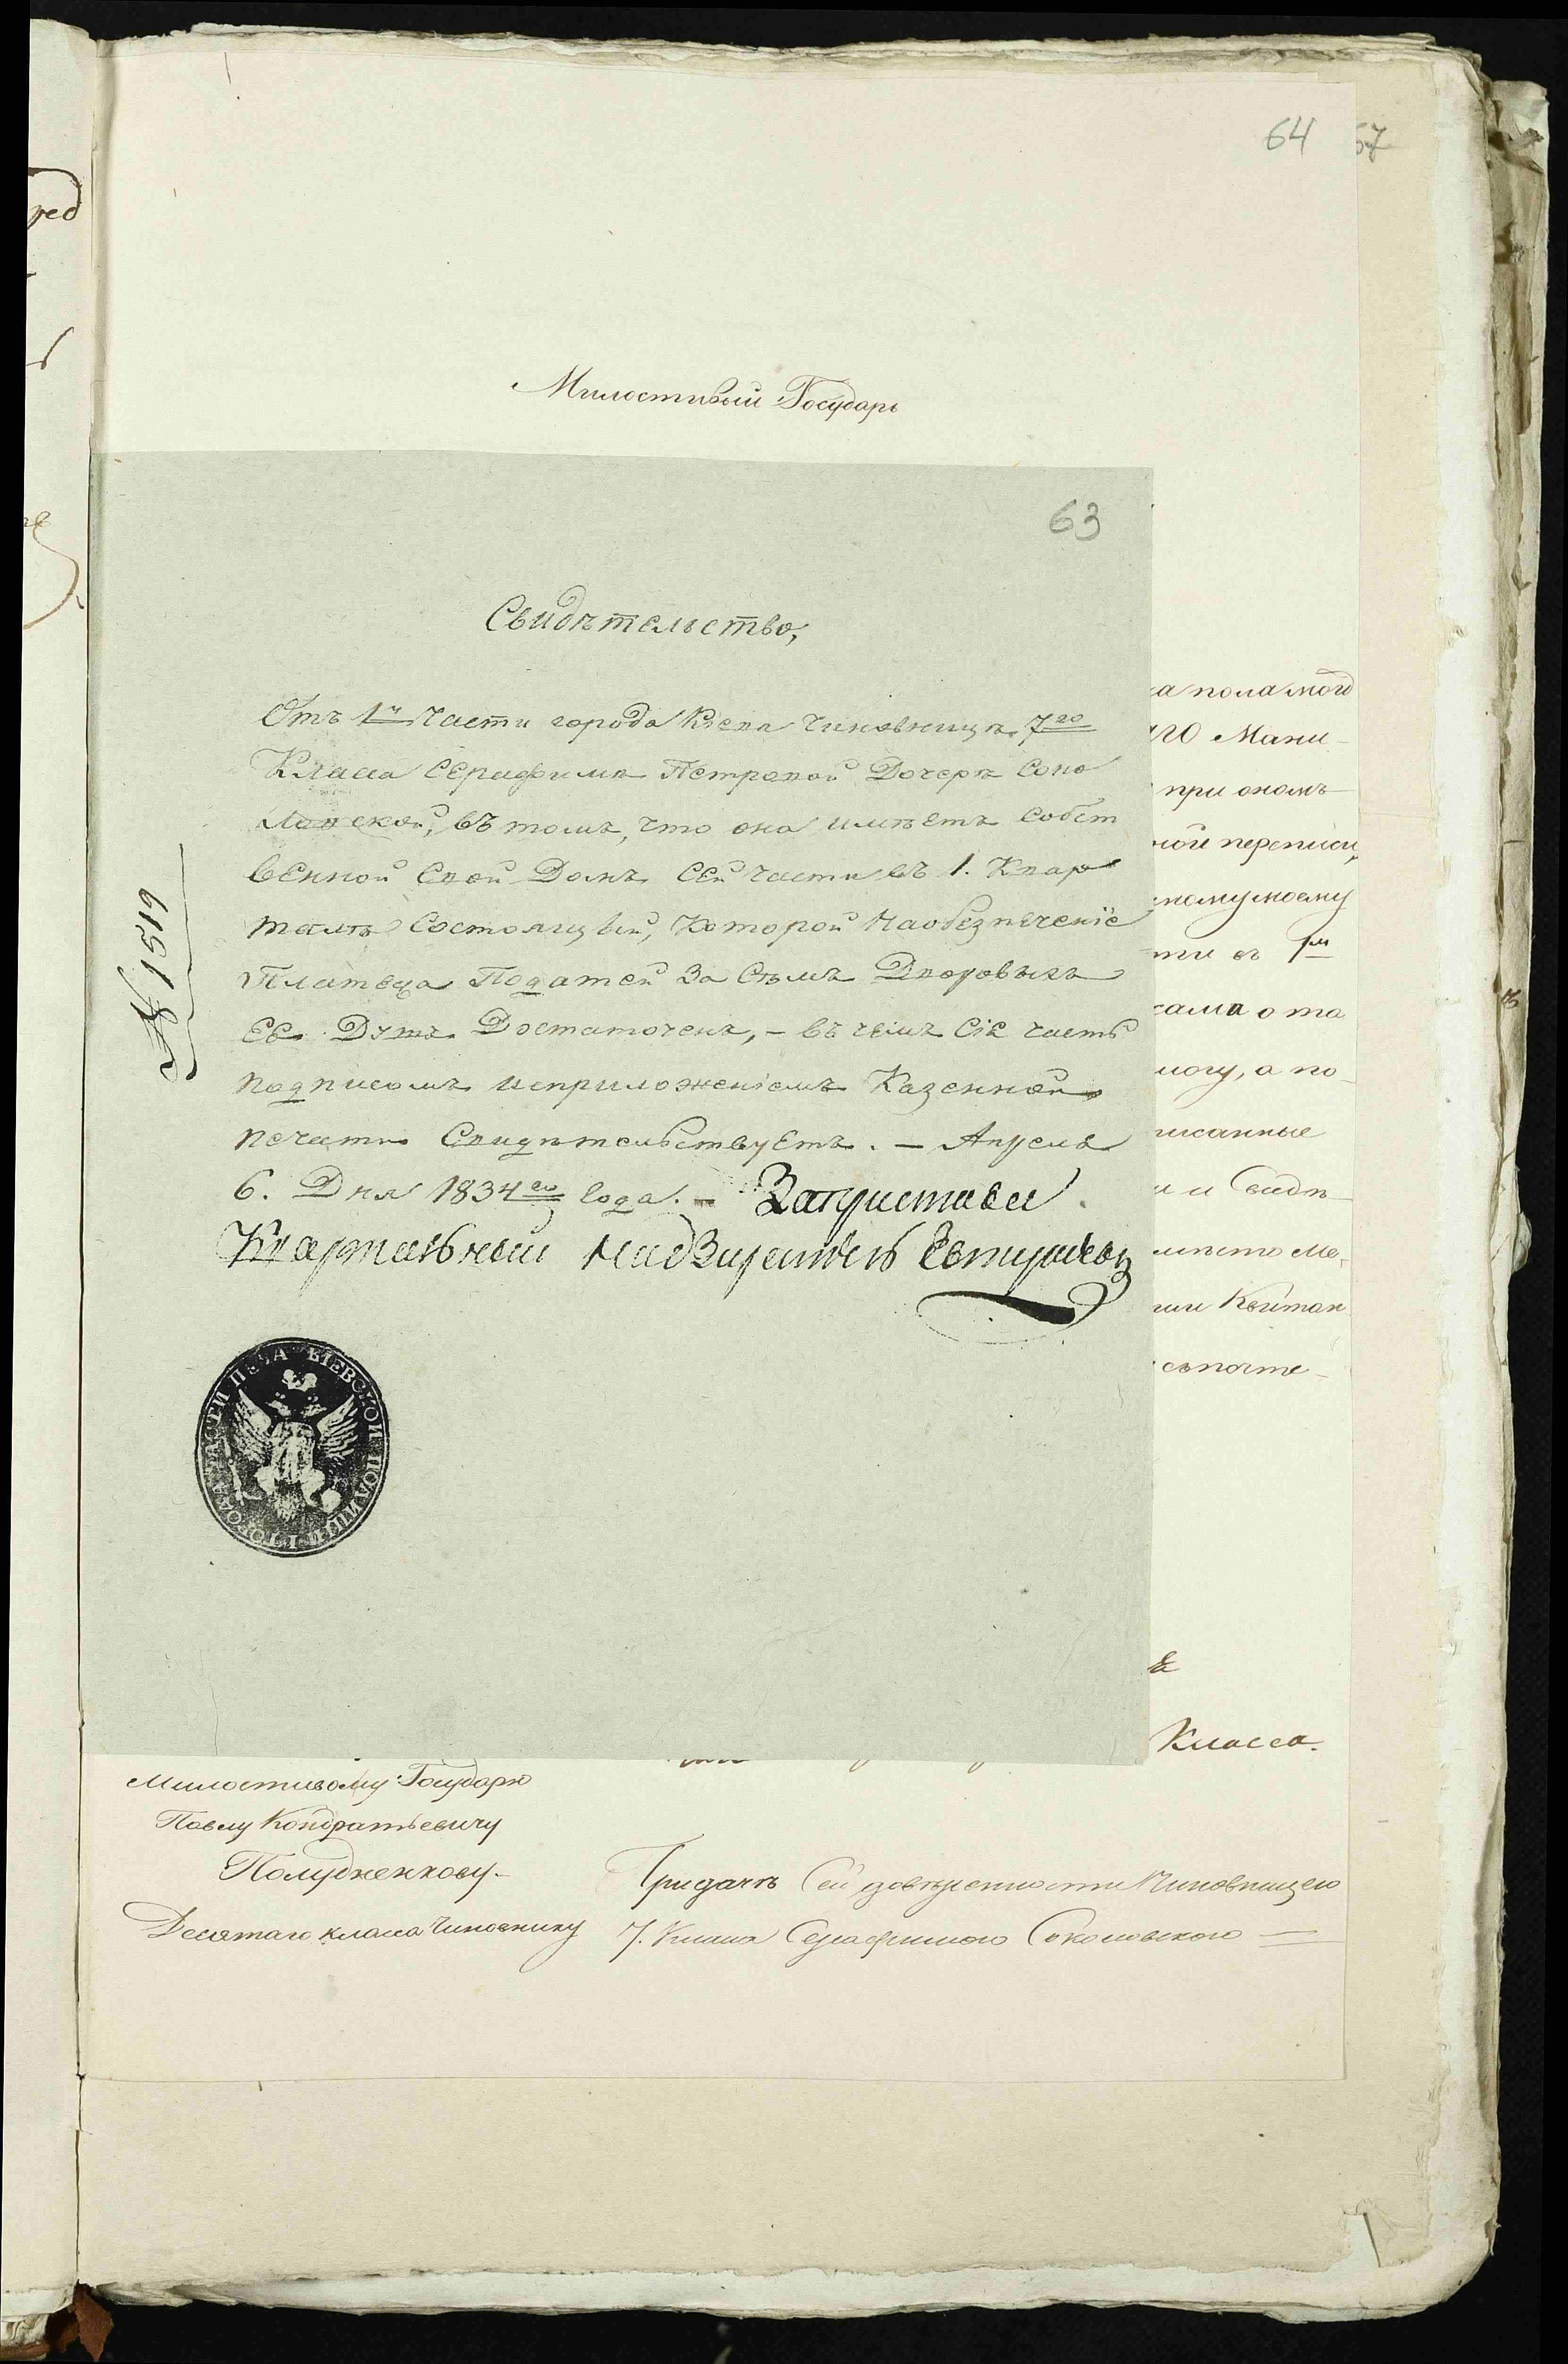 64 67
Милостивый Государь
63
Свидѣтельство,
Отъ 1й Части города Кіева Чиновницѣ 7го
Класса Серафимѣ Петровой Дочерѣ Соко
ловской, въ томъ, что она имѣетъ собст
венной свой Домъ сей части въ 1. Квар
талѣ Состоящый, Которой На обезпеченіе
Платежа Податей За Сѣмъ Дворовыхъ
Ее Душъ Достаточенъ, – въ чемъ Сіе часть
подписомъ исприложеніемъ Казенной
печати Свидѣтельствуетъ. – Апреля
6. Дня 1834го года. – За пристава
Квартальный Надзиратель
№ 1519
КІЕВСКОЙ ПОЛИЦІИ ЧАСТИ ПЕЧА
а пола мой
аго Мани-
при ономъ
ной переписи,
ному моему
ти въ 1й
сама о та
могу, а по-
писанные
и и Свидѣ-
мѣсто ме-
ии Квитан
съ почте-
Класса.
Милостивому Государю
Павлу Кондратьевичу
Полудненкову.
Десятаго класса Чиновнику
Придачѣ Сей довѣренности Чиновницею
7. Класса Серафимою Соколовскою =